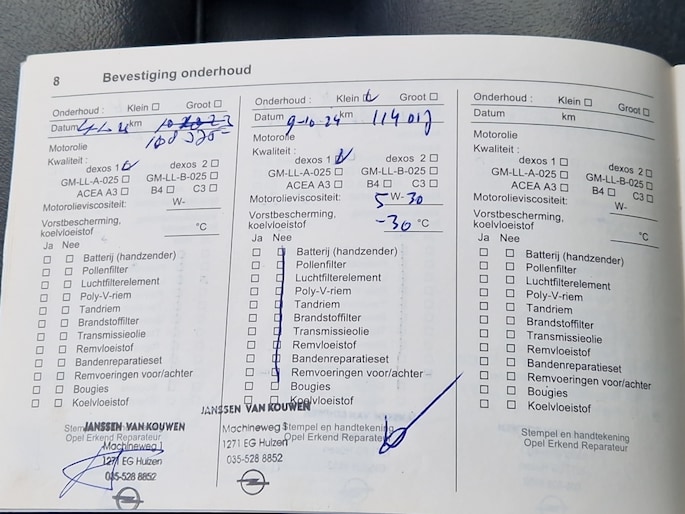 8 Bevestiging onderhoud
Onderhoud : Klein Groot
Datum km
Motorolie
Kwaliteit :
dexos 1 dexos 2
GM-LL-A-025 GM-LL-B-025
ACEA A3 B4 C3
Motorolieviscositeit: W-
Vorstbescherming,
koelvloeistof °C
Ja Nee
Batterij (handzender)
Pollenfilter
Luchtfilterelement
Poly-V-riem
Tandriem
Brandstoffilter
Transmissieolie
Remvloeistof
Bandenreparatieset
Remvoeringen voor/achter
Bougies
Koelvloeistof
JANSSEN VAN KOUWEN
Opel Erkend Reparateur
Machineweg 1
1271 EG Huizen
035-528 8852
Onderhoud : Klein Groot
Datum 9-10-24 km 114 017
Motorolie
Kwaliteit :
dexos 1 dexos 2
GM-LL-A-025 GM-LL-B-025
ACEA A3 B4 C3
Motorolieviscositeit: 5 W- 30
Vorstbescherming,
koelvloeistof -30 °C
Ja Nee
Batterij (handzender)
Pollenfilter
Luchtfilterelement
Poly-V-riem
Tandriem
Brandstoffilter
Transmissieolie
Remvloeistof
Bandenreparatieset
Remvoeringen voor/achter
Bougies
Koelvloeistof
JANSSEN VAN KOUWEN
Machineweg 1 Stempel en handtekening
1271 EG Huizen Opel Erkend Reparateur
035-528 8852
Onderhoud : Klein Groot
Datum km
Motorolie
Kwaliteit :
dexos 1 dexos 2
GM-LL-A-025 GM-LL-B-025
ACEA A3 B4 C3
Motorolieviscositeit: W-
Vorstbescherming,
koelvloeistof °C
Ja Nee
Batterij (handzender)
Pollenfilter
Luchtfilterelement
Poly-V-riem
Tandriem
Brandstoffilter
Transmissieolie
Remvloeistof
Bandenreparatieset
Remvoeringen voor/achter
Bougies
Koelvloeistof
Stempel en handtekening
Opel Erkend Reparateur